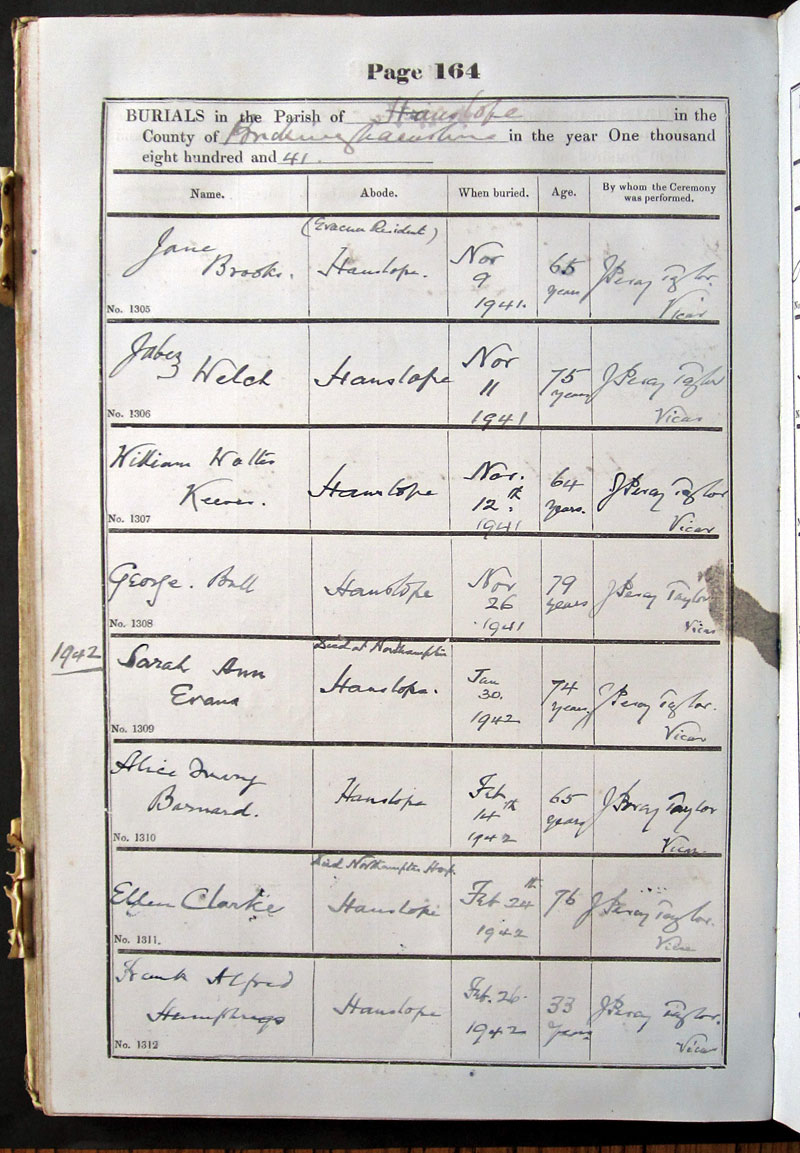 Page 164
BURIALS in the Parish of Hanslope in the
County of Buckinghamshire in the year One thousand
eight hundred and 41.
Name. Abode. When buried. Age. By whom the Ceremony was performed.
(Evacuee Resident)
Jane Brooks. Hanslope. Nov 9 1941. 65 years J Percy Taylor. Vicar
No. 1305
Jabez Welch Hanslope Nov 11 1941 75 years J Percy Taylor Vicar
No. 1306
William Walter Keeves. Hanslope Nov. 12th. 1941 64 years. J Percy Taylor Vicar
No. 1307
George. Ball Hanslope Nov 26 1941 79 years J Percy Taylor Vicar
No. 1308
1942
Died at Northampton
Sarah Ann Evans Hanslope. Jan 30. 1942 74 years J Percy Taylor. Vicar
No. 1309
Alice Barnard. Hanslope Feb 14th 1942 65 years J Percy Taylor Vicar
No. 1310
Died Northampton Hosp
Ellen Clarke Hanslope Feb 24th 1942 76 J Percy Taylor. Vicar
No. 1311.
Frank Alfred Humphreys Hanslope Feb. 26. 1942 33 Years J Percy Taylor. Vicar
No. 1312